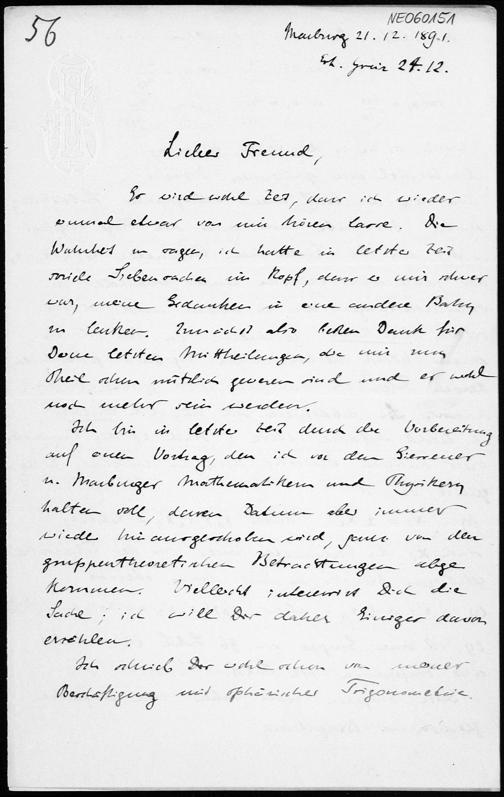 56
NE060151
Marburg 21. 12. 1891.
Erh. 24.12.
Lieber Freund,
Es wird wohl Zeit, dass ich wieder
einmal etwas von mir hören lasse. Die
Wahrheit zu sagen, ich hatte in letzter Zeit
soviele Siebensachen im Kopf, dass es mir schwer
war, meine Gedanken in eine andere Bahn
zu lenken. Zunächst also besten Dank für
Deine letzten Mittheilungen, die mir zum
Theil schon nützlich gewesen sind und es wohl
noch mehr sein werden.
Ich bin in letzter Zeit durch die Vorbereitung
auf einen Vortrag, den ich vor den Giessener
u. Marburger Mathematikern und Physikern
halten soll, dessen Datum aber immer
wieder hinausgeschoben wird, ganz von den
gruppentheoretischen Betrachtungen abge
kommen. Vielleicht interessirt Dich die
Sache; ich will Dir daher Einiges davon
erzählen.
Ich schrieb Dir wohl schon von meiner
Beschäftigung mit sphärischer Trigonometrie.